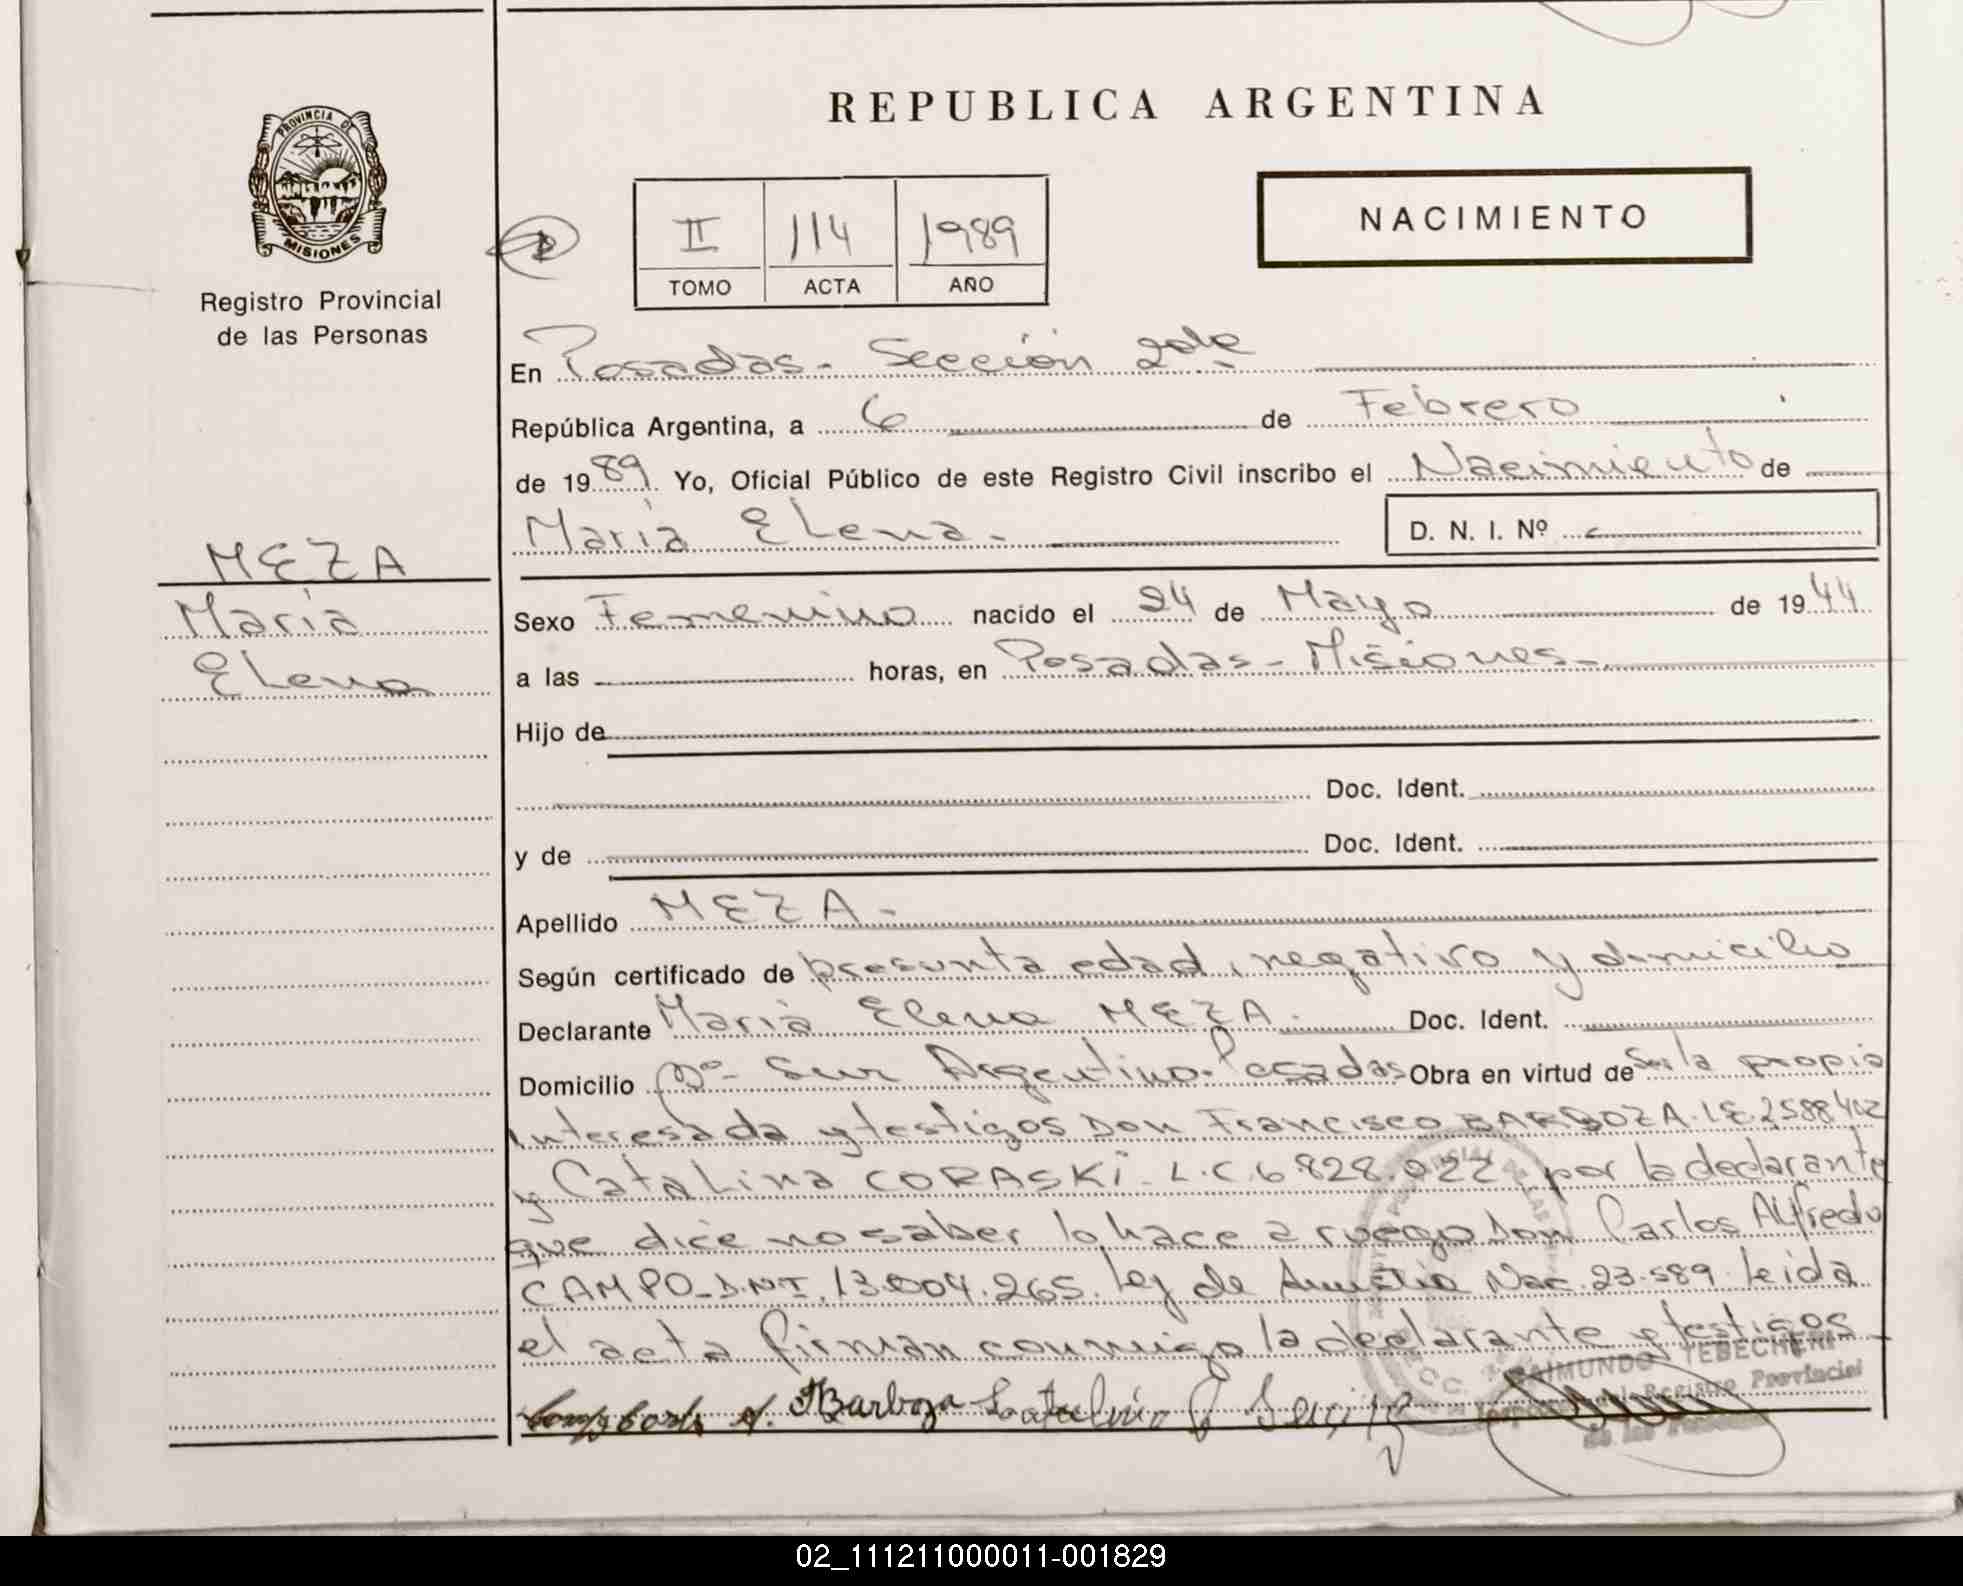 REPUBLICA ARGENTINA
PROVINCIA DE
MISIONES
Registro Provincial
de las Personas
II 114 1989
TOMO ACTA AÑO
NACIMIENTO
En Posadas - Sección 2da
República Argentina, a 6 de Febrero
de 1989. Yo, Oficial Público de este Registro Civil inscribo el Nacimiento de
María Elena -
D. N. I. Nº
MEZA
María
Elena
Sexo Femenino nacido el 24 de Mayo de 1944
a las horas, en Posadas - Misiones -
Hijo de
Doc. Ident.
y de Doc. Ident.
Apellido MEZA -
Según certificado de presunta edad, negativo y domicilio
Declarante María Elena MEZA. Doc. Ident.
Domicilio Bº Sur Argentino. Posadas Obra en virtud de Ser la propia
interesada y testigos Don Francisco BARBOZA. L.E. 2588402
y Catalina CORASKI - L.C. 6.828.022 por la declarante
que dice no saber lo hace a ruego Don Carlos Alfredo
CAMPO - D.N.I. 13.004.265. Ley de Amnistia Nac. 23.589. Leida
el acta firman conmigo la declarante y testigos
Barboza Catalina
RAIMUNDO TEBECHERI
Registro Provincial
de las Personas
02_111211000011-001829